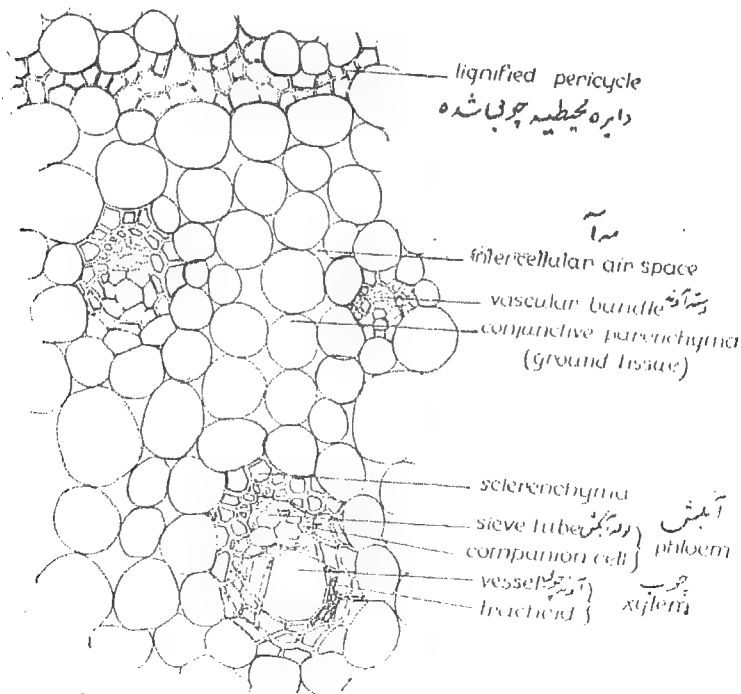 lignified pericycle
دایره محیطیه چوبی شده
intercellular air space
vascular bundle دسته آوند
conjunctive parenchyma
(ground tissue)
sclerenchyma
sieve tube لوله آبکش
companion cell
phloem آبکش
vessel آوند چوبی
tracheid
xylem چوب